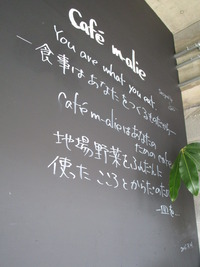 Café m-alie
You are what you eat.
一食事はあなたをつくるものだから一
Café m-alieはあなたの
ための cafe
地場野菜をふんだんに
使った こころとからだのための